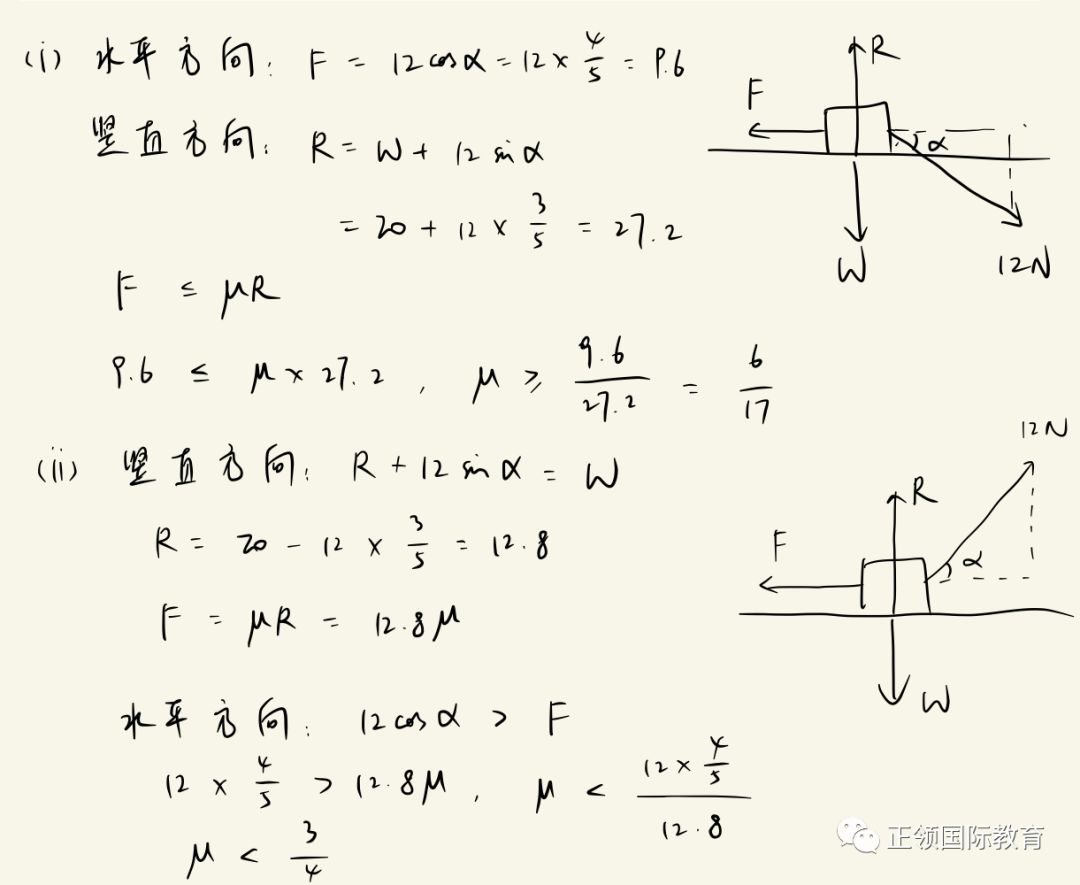 (i) 水平方向: F = 12 cos α = 12 × 4/5 = 9.6
竖直方向: R = W + 12 sin α
= 20 + 12 × 3/5 = 27.2
F ≤ μR
9.6 ≤ μ × 27.2, μ ≥ 9.6/27.2 = 6/17
R
F
α
W
12N
(ii) 竖直方向: R + 12 sin α = W
R = 20 - 12 × 3/5 = 12.8
F = μR = 12.8μ
水平方向: 12 cos α > F
12 × 4/5 > 12.8μ, μ < (12 × 4/5)/12.8
μ < 3/4
12N
R
F
α
W
正领国际教育